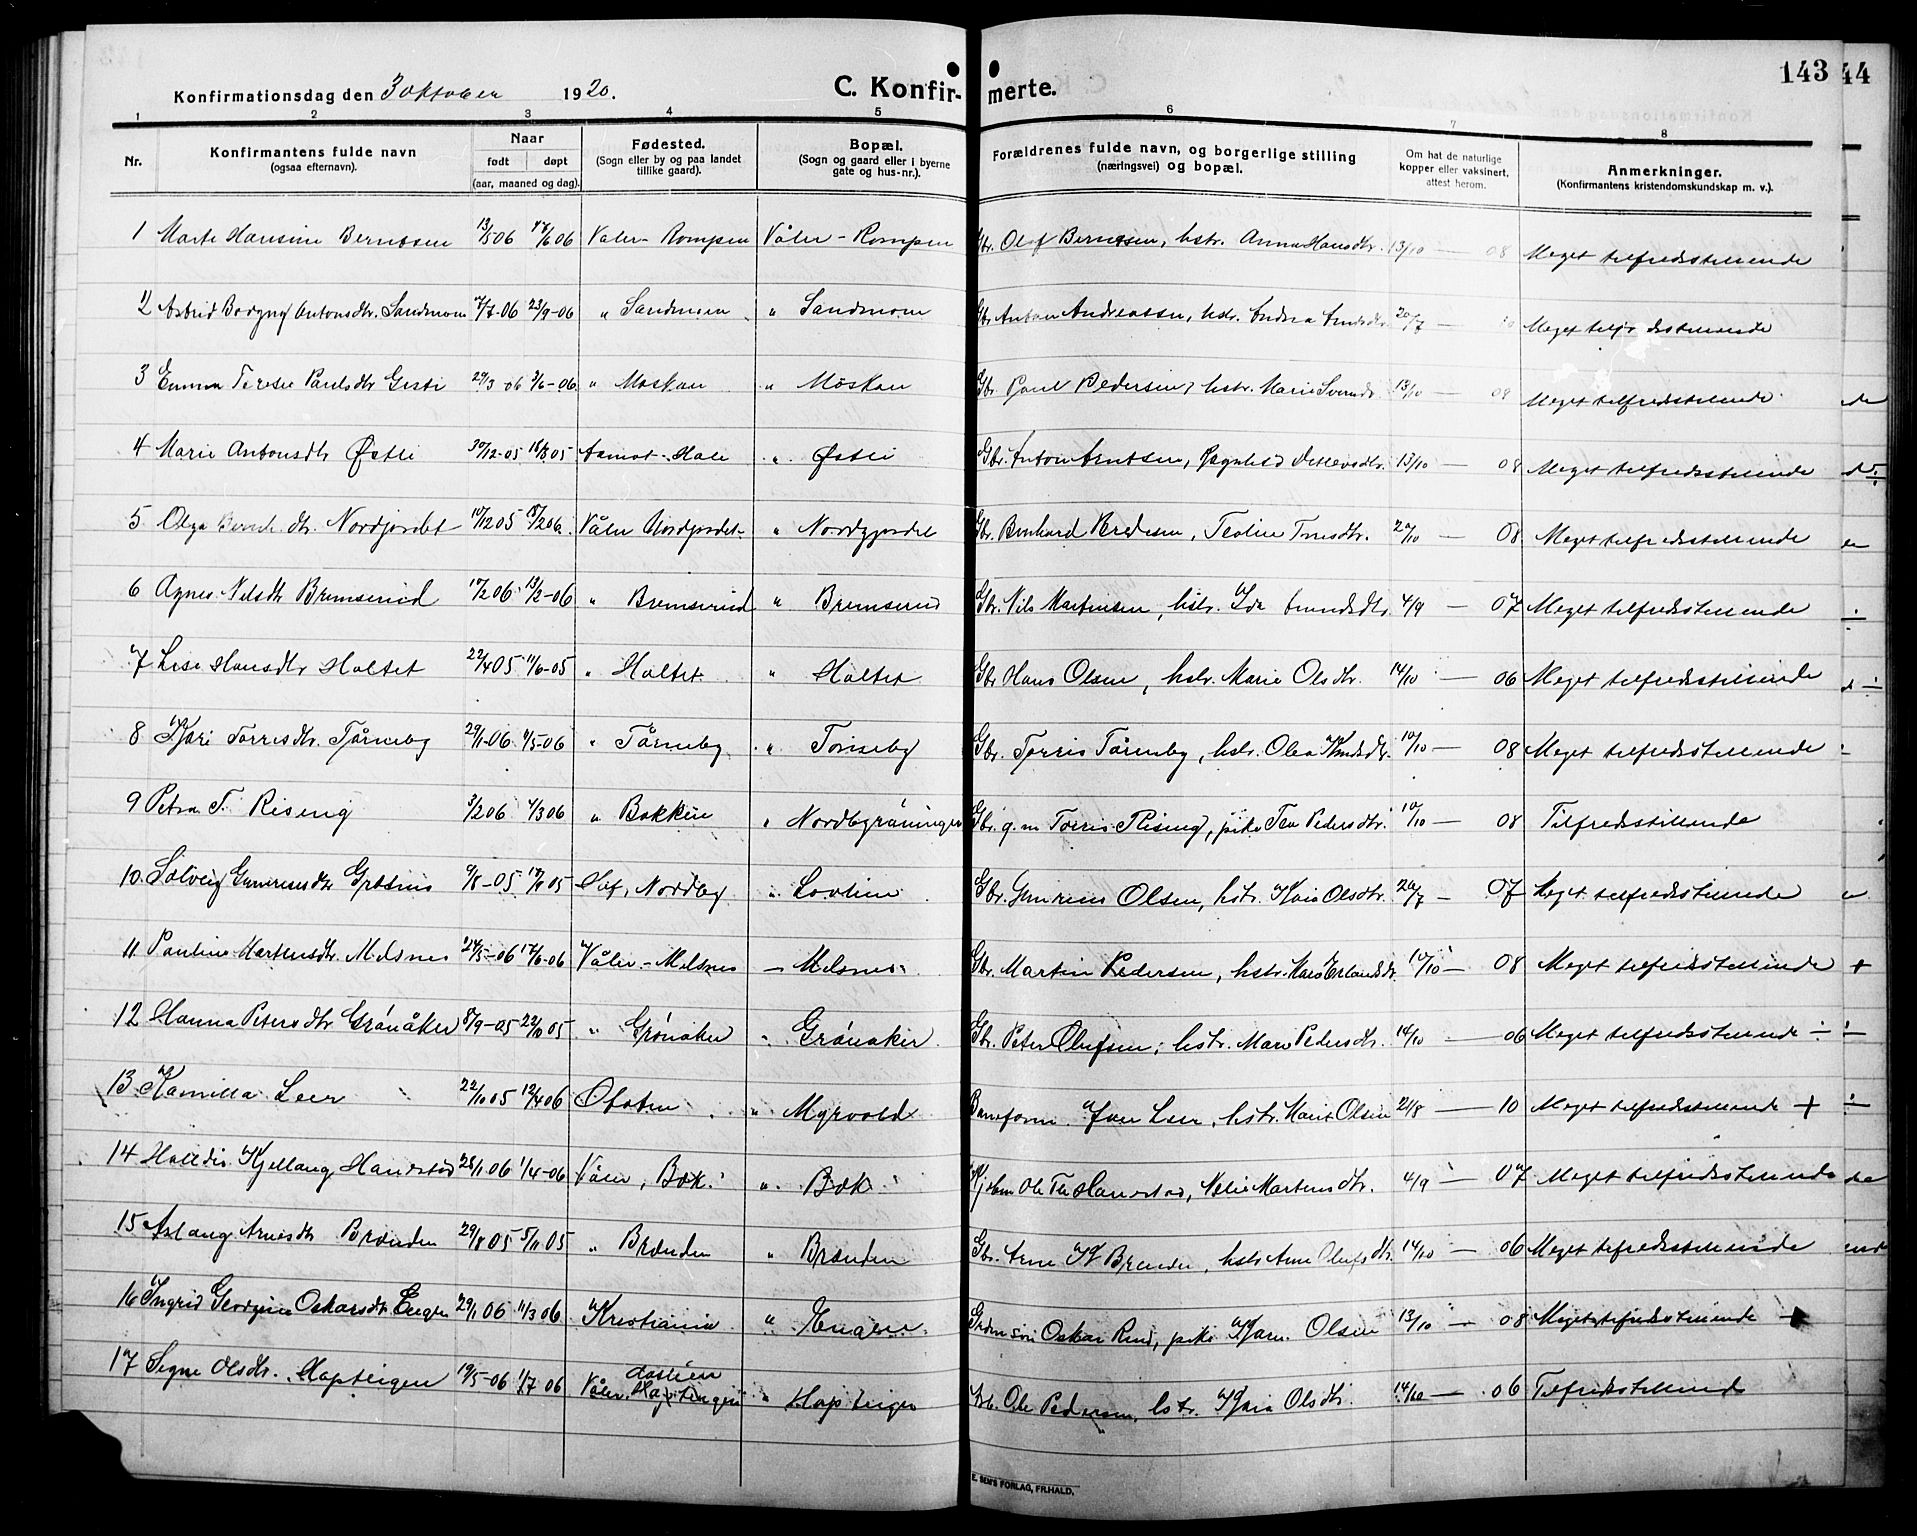 143 44
Konfirmationsdag den 3 oktober 1920. C. Konfirmerte.
1 2 3 4 5 6 7 8
Nr. Konfirmantens fulde navn (ogsaa efternavn). Naar født døpt (aar, maaned og dag). Fødested. (Sogn eller by og paa landet tillike gaard). Bopæl. (Sogn og gaard eller i byerne gate og hus-nr.). Forældrenes fulde navn, og borgerlige stilling (næringsvei) og bopæl. Om hat de naturlige kopper eller vaksinert, attest herom. Anmerkninger. (Konfirmantens kristendomskundskap m. v.).
1 Marte Hansine Berntsen 13/5 06 06 Valer - Rompen Våler - Rompen Gbr. Olof Berntsen, hstr. Anna Hansdtr. 13/10 — 08 Meget tilfredsstillende
2 Astrid Bodgny Antonsdtr. Sandmoen 7/7-06 23/9-06 " Sandmoen " Sandmoen Gbr. Anton Andreassen, hstr. 20/7 — Meget tilfredsstillende
3 Emma Terese Paulsdtr 29/3-06 3/6-06 " Moskau " Möskau Gbr. Paul Pedersen, hstr. Marie 13/10 — 08 Meget tilfredsstillende
4 Marie Antonsdtr Østli 30/12-05 Aamot - " Østli Gbr. Anton Arntsen, Ragnhild 13/10 — 08 Meget tilfredsstillende
5 Olga Bernh. dtr. Nordjordet 05 06 Våler Nordjordet " Nordgjordet Gbr. Bernhard 20/10 — 08 Meget tilfredsstillende
6 Agnes Nilsdtr Bremserud 17/2 06 13/2-06 " Bremserud " Bremserud Gbr. Nils Martinsen, hstr. Ida 4/9 — 07 Meget tilfredsstillende
7 Lise Hansdtr Haltet 22/4 05 11/6-05 " Haltet " Haltet Gbr. Hans Olsen, hstr. Marie Olsdtr. 14/10 — 06 Meget tilfredsstillende
8 Kari Torresdtr. Tårneby 29/1-06 4/5-06 " Tårneby " Gbr. Torris Tårneby, hstr. Olea Knudsdtr. 10/10 — 08 Meget tilfredsstillende
9 Petra T. Riseng 3/2 06 4/3 06 " Bakken " Gbr. g. m. Torris Riseng, pike Tea Pedersdtr. 10/10 — 08 Tilfredstillende
10 Solveig 05 05 Nordby " Lovlien Gbr. Olsen, hstr. Kaia Olsdtr. 20/7 — 07 Meget tilfredsstillende
11 Pauline Martinsdtr. Melsnes 24/5-06 17/6-06 Våler - Melsnes — Melsnes Gbr. Martin Pedersen, hstr. Kari Erlandsdtr. 10/10 — 08 Meget tilfredsstillende +
12 Hanna Petersdtr Grönåker 8/9-05 22/10 05 " Grönåker " Grönaker Gbr. Peter Olufsen, hstr. Mari Pedersdtr. 14/10 — 06 Meget tilfredsstillende ÷
13 Kamilla Leer 22/10 05 12/4 06 " Myrvold Baneform. Leer, hstr. Marit Olsen 21/8 — 10 Meget tilfredsstillende +
14 Halldis Kjellaug Hanestad 28/1 06 1/4-06 Våler, Bæk " Bæk Ole Hanestad, Martinsdtr. 4/9 — 07 Meget tilfredsstillende
15 Aslaug Arnesdtr Brænden 29/8 05 5/11 05 " Brænden " Brænden Gbr. Arne K Brænden, hstr Olufsdtr. 14/10 — 06 Meget tilfredsstillende
16 Ingrid Georgine Oskarsdtr Engen 29/1 06 11/3 06 Kristiania " Engen Oskar pike Karen Olsen 13/10 — 08 Meget tilfredsstillende
17 Signe Olsdtr. Hapteigen 19/5-06 1/7 06 Våler Haptengen " Hapteigen Ole Pedersen, hstr. Kaia Olsdtr. 14/10 — 06 Tilfredstillende
E. SEM'S FORLAG, FR.HALD.